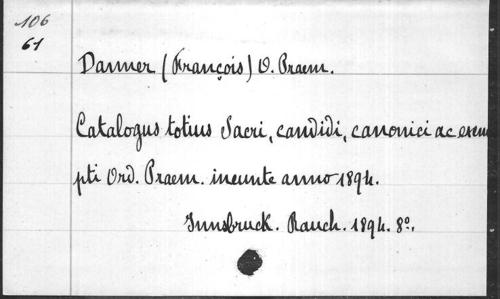 106
61
Danner (François) O. Praem.
Catalogus totius Sacri, candidi, canonici ac exem
pti Ord. Praem. ineunte anno 1894.
Innsbruck. Rauch. 1894. 8°.